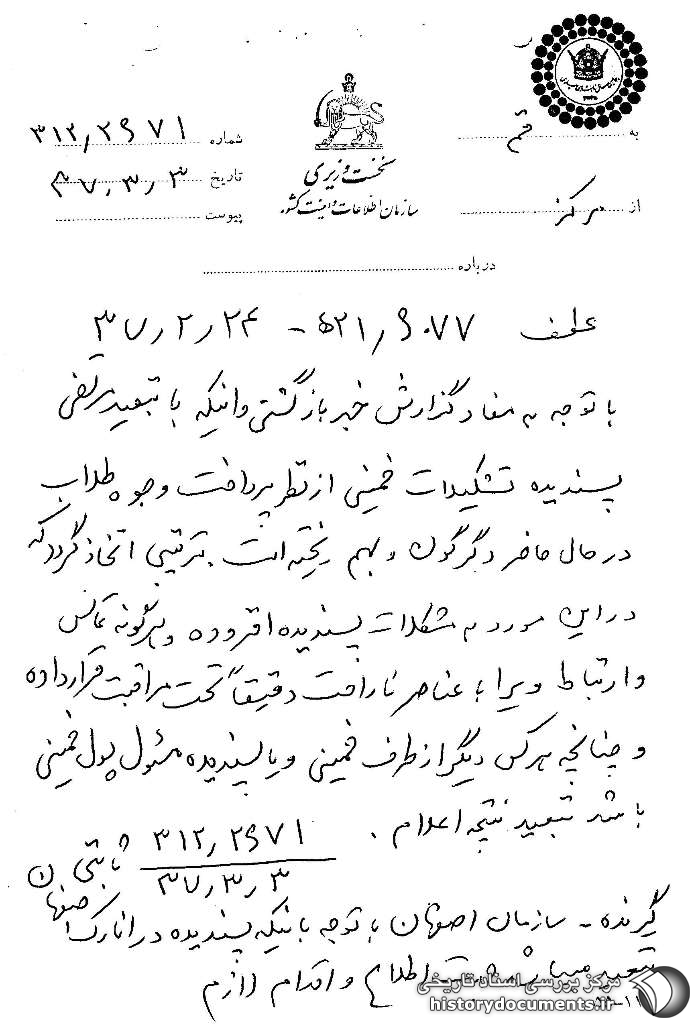 به قم
نخست وزیری
سازمان اطلاعات و امنیت کشور
شماره ۳۱۲/۲۹۷۱
تاریخ ۳۷/۳/۳
از مرکز
پیوست
درباره
عطف ۵۲۱/۶۰۷۷ - ۳۷/۲/۲۴
با توجه به مفاد گزارش خبر بازگشتی و اینکه با تبعید مرتضی
پسندیده تشکیلات خمینی از نظر پرداخت وجوه طلاب
در حال حاضر دگرگون و بهم ریخته است. ترتیبی اتخاذ گردد که
در این مورد به مشکلات پسندیده افزوده و هرگونه تماس
و ارتباط ویرا با عناصر ناراحت دقیقاً تحت مراقبت قرار داده
و چنانچه هرکس دیگر از طرف خمینی و یا پسندیده مسئول پول خمینی
باشد تبعید نتیجه اعلام . ۳۱۲/۲۹۷۱ ثابتی
۳۷/۳/۳
گیرنده - سازمان اصفهان با توجه باینکه پسندیده در انارک اصفهان
تبعید میباشد اطلاع و اقدام لازم
مرکز بررسی اسناد تاریخی
historydocuments.ir